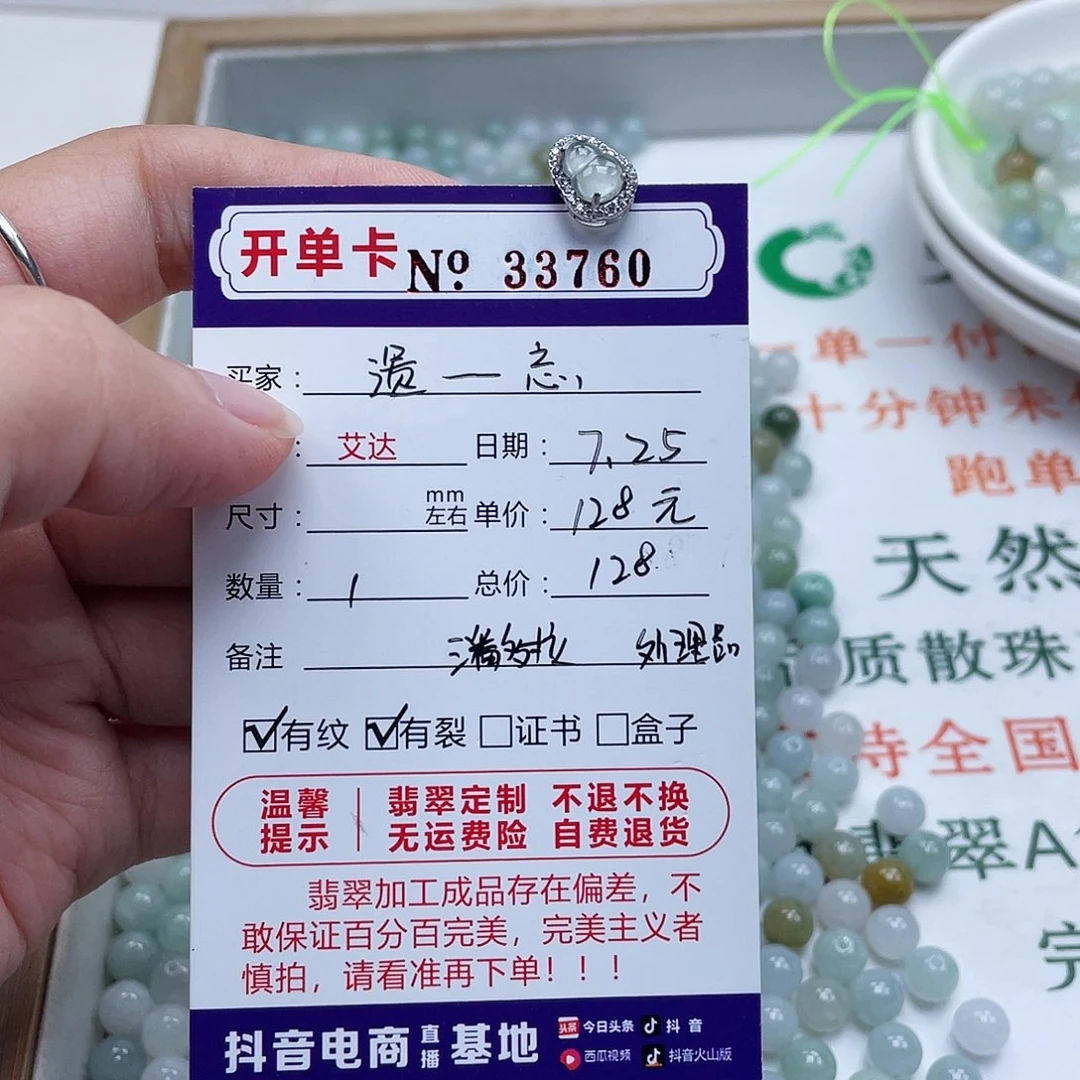 开单卡 Nº 33760
买家：
： 艾达 日期：7.25
尺寸： mm左右 单价：128元
数量：1 总价：128
备注 处理品
☑有纹 ☑有裂 □证书 □盒子
温馨提示
翡翠定制 不退不换
无运费险 自费退货
翡翠加工成品存在偏差，不
敢保证百分百完美，完美主义者
慎拍，请看准再下单！！！
抖音电商 直播 基地
今日头条 抖音
西瓜视频 抖音火山版
一单一付
十分钟未
跑单
天然
质散珠
持全国
翡翠A
完